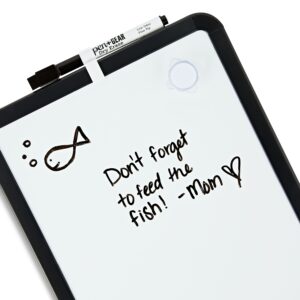 pen+GEAR
Dry Erase
Don't forget
to feed the
fish! -Mom